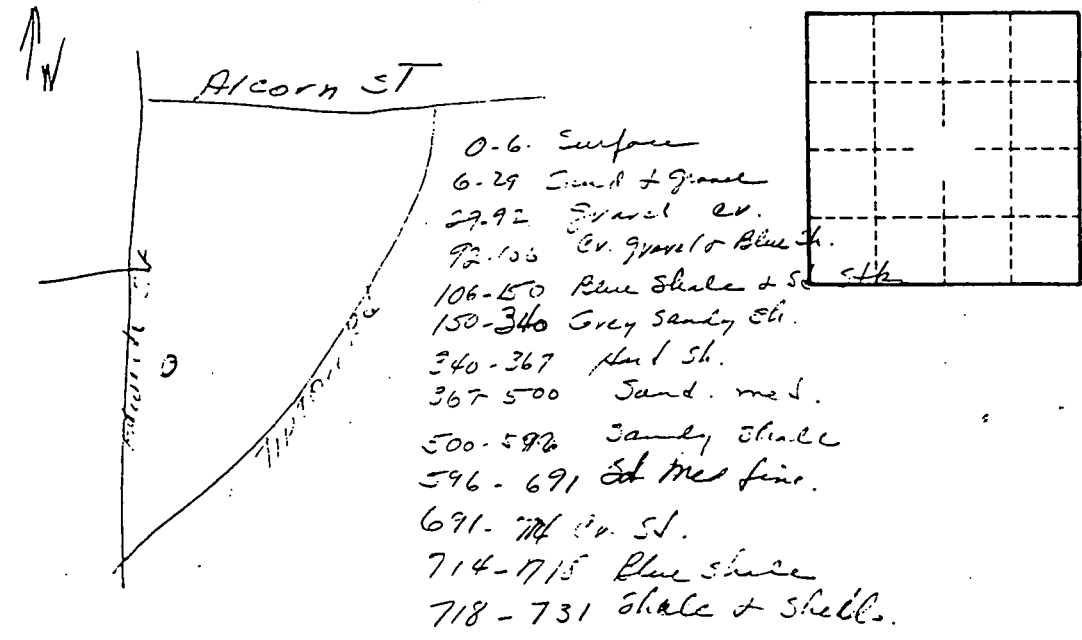 N
Alcorn ST
0-6. Surface
6-29 Sand & Gravel
29-92 Gravel cr.
92-106 Cr. gravel & Blue Sh.
106-150 Blue Shale & Sd Stk
150-340 Grey Sandy Sh.
340-367 Hard Sh.
367-500 Sand. med.
500-596 Sandy Shale
596-691 Sd Med fine.
691-714 Cr. Sd.
714-718 Blue Shale
718-731 Shale & Shells.